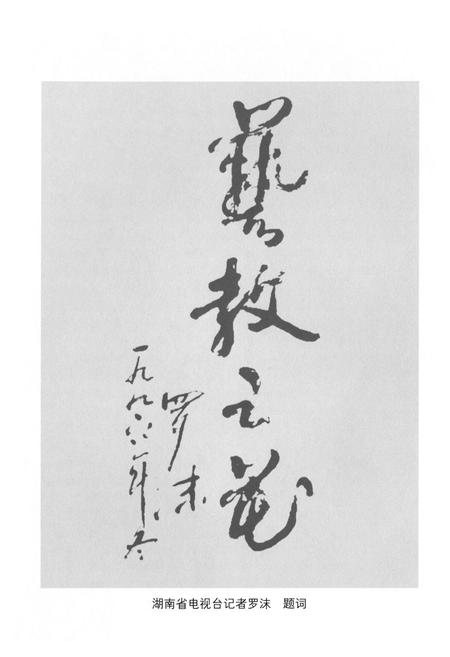 藝教之花
罗沫
一九九六年冬
湖南省电视台记者罗沫　题词